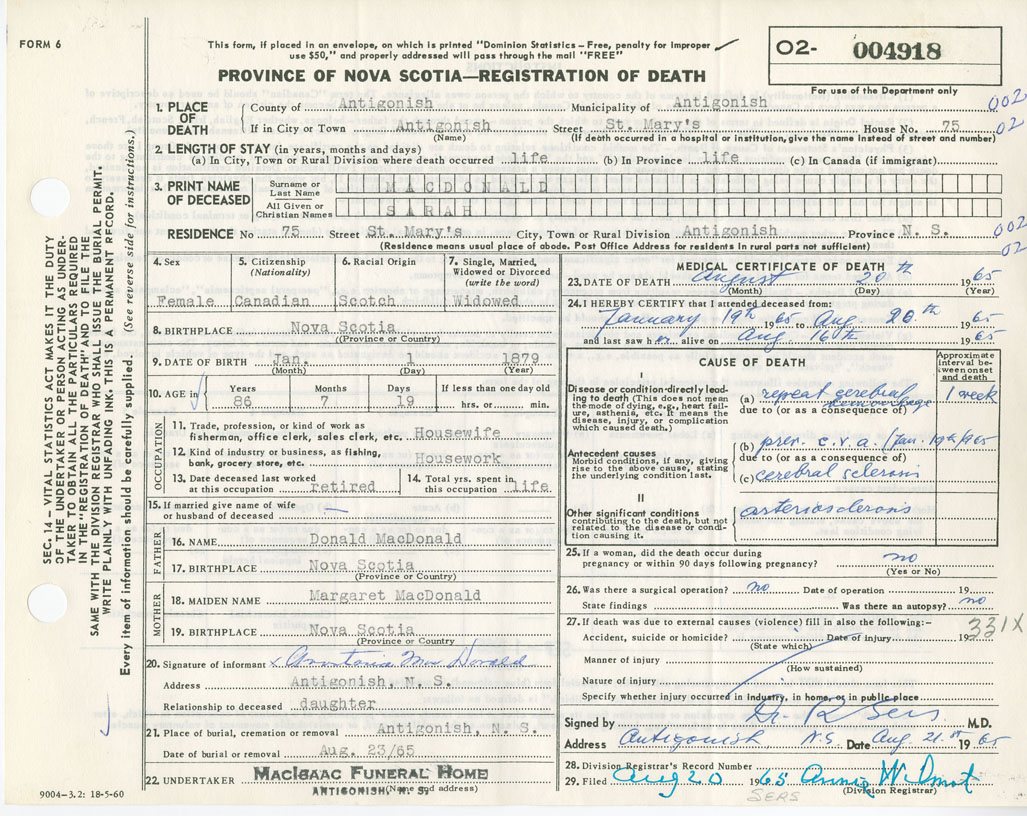 FORM 6
This form, if placed in an envelope, on which is printed "Dominion Statistics – Free, penalty for improper
use $50," and properly addressed will pass through the mail "FREE"
O2- 004918
For use of the Department only
PROVINCE OF NOVA SCOTIA—REGISTRATION OF DEATH
SEC. 14 – VITAL STATISTICS ACT MAKES IT THE DUTY
OF THE UNDERTAKER OR PERSON ACTING AS UNDER-
TAKER TO OBTAIN ALL THE PARTICULARS REQUIRED
IN THE "REGISTRATION OF DEATH" AND TO FILE THE
SAME WITH THE DIVISION REGISTRAR WHO SHALL ISSUE THE BURIAL PERMIT.
WRITE PLAINLY WITH UNFADING INK. THIS IS A PERMANENT RECORD.
Every item of information should be carefully supplied. (See reverse side for instructions.)
1. PLACE OF DEATH
County of Antigonish Municipality of Antigonish 002
If in City or Town Antigonish Street St. Mary's House No. 75 02
(Name) (If death occurred in a hospital or institution, give the name instead of street and number)
2. LENGTH OF STAY (in years, months and days)
(a) In City, Town or Rural Division where death occurred life (b) In Province life (c) In Canada (if immigrant)
3. PRINT NAME OF DECEASED
Surname or Last Name MACDONALD
All Given or Christian Names SARAH
RESIDENCE No 75 Street St. Mary's City, Town or Rural Division Antigonish Province N. S. 002
(Residence means usual place of abode. Post Office Address for residents in rural parts not sufficient) 02
4. Sex
Female
5. Citizenship (Nationality)
Canadian
6. Racial Origin
Scotch
7. Single, Married, Widowed or Divorced (write the word)
Widowed
8. BIRTHPLACE Nova Scotia
(Province or Country)
9. DATE OF BIRTH Jan. 1 1879
(Month) (Day) (Year)
10. AGE in
Years Months Days If less than one day old
86 7 19 hrs. or min.
OCCUPATION
11. Trade, profession, or kind of work as
fisherman, office clerk, sales clerk, etc. Housewife
12. Kind of industry or business, as fishing,
bank, grocery store, etc. Housework
13. Date deceased last worked at this occupation retired
14. Total yrs. spent in this occupation life
15. If married give name of wife
or husband of deceased —
FATHER
16. NAME Donald MacDonald
17. BIRTHPLACE Nova Scotia
(Province or Country)
MOTHER
18. MAIDEN NAME Margaret MacDonald
19. BIRTHPLACE Nova Scotia
(Province or Country)
20. Signature of informant x Mac Donald
Address Antigonish, N. S.
Relationship to deceased daughter
21. Place of burial, cremation or removal Antigonish, N. S.
Date of burial or removal Aug. 23/65
22. UNDERTAKER MACISAAC FUNERAL HOME
ANTIGONISH, N. S.
(Name and address)
9004-3.2: 18-5-60
MEDICAL CERTIFICATE OF DEATH
23. DATE OF DEATH August 20th 1965
(Month) (Day) (Year)
24. I HEREBY CERTIFY that I attended deceased from:
January 19th 1965 to Aug. 20th 1965
and last saw her alive on Aug. 16th 1965
CAUSE OF DEATH
Approximate interval between onset and death
I
Disease or condition directly lead-
ing to death (This does not mean
the mode of dying, e.g., heart fail-
ure, asthenia, etc. It means the
disease, injury, or complication
which caused death.)
(a) repeat cerebral haemorrhage 1 week
due to (or as a consequence of)
Antecedent causes
Morbid conditions, if any, giving
rise to the above cause, stating
the underlying condition last.
(b) prev. c.v.a. (Jan. 19th 1965
due to (or as a consequence of)
(c) cerebral sclerosis
II
Other significant conditions
contributing to the death, but not
related to the disease or condi-
tion causing it.
arteriosclerosis
25. If a woman, did the death occur during
pregnancy or within 90 days following pregnancy? no
(Yes or No)
26. Was there a surgical operation? no Date of operation 19
State findings Was there an autopsy? no
27. If death was due to external causes (violence) fill in also the following:–
331X
Accident, suicide or homicide? Date of injury 19
(State which)
Manner of injury
(How sustained)
Nature of injury
Specify whether injury occurred in industry, in home, or in public place
Signed by Dr. R Sers M.D.
Address Antigonish, N.S. Date Aug. 21st 1965
28. Division Registrar's Record Number
29. Filed Aug 20 1965 Annie W.
(Division Registrar)
SERS